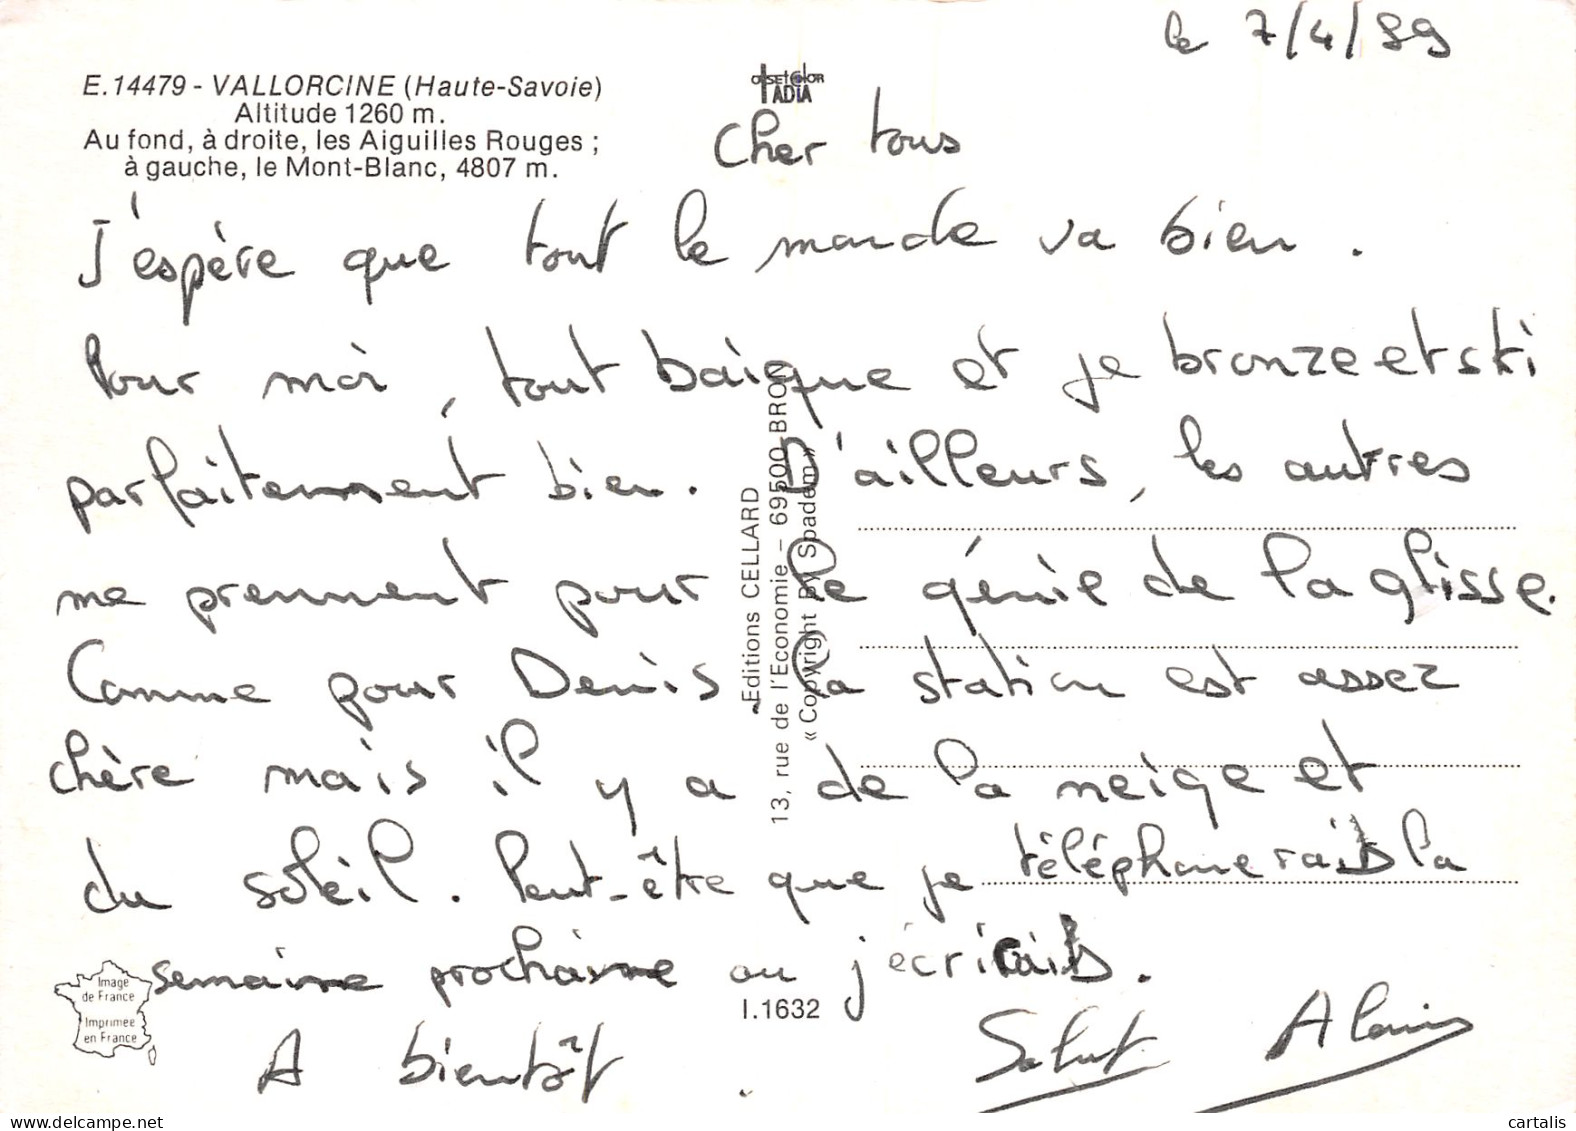 le 7/4/89
E.14479 - VALLORCINE (Haute-Savoie)
Altitude 1260 m.
Au fond, à droite, les Aiguilles Rouges ;
à gauche, le Mont-Blanc, 4807 m.
offsetcolor
IADIA
Cher tous
J'espère que tout le monde va bien.
Pour moi, tout baigne et je bronze et ski
parfaitement bien. D'ailleurs, les autres
me prennent pour le génie de la glisse.
Comme pour Denis la station est assez
chère mais il y a de la neige et
du soleil. Peut-être que je téléphonerais la
semaine prochaine ou j'écrirais.
A bientôt.
Salut Alain
Editions CELLARD
13, rue de l'Economie - 69500 BRON
« Copyright By Spadem »
Image
de France
Imprimée
en France
I.1632
cartalis